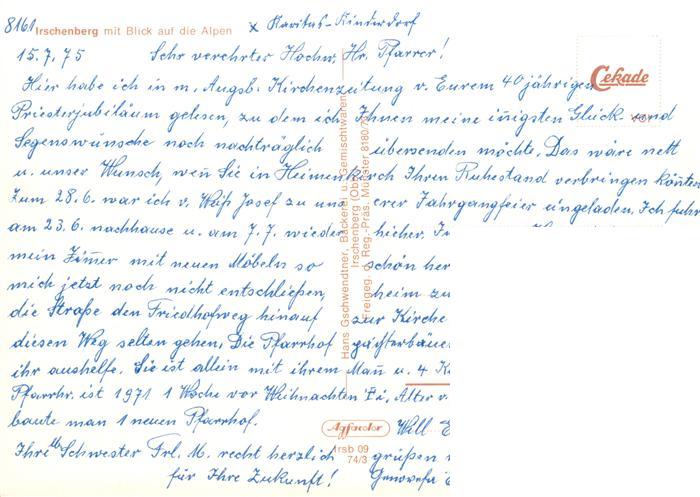 8161 Irschenberg mit Blick auf die Alpen x Karitas-Kinderdorf
15.7.75 Sehr verehrter Hochw. Hr. Pfarrer!
Cekade
Hier habe ich in m. Augsb. Kirchenzeitung v. Eurem 40jährigen
Priesterjubiläum gelesen, zu dem ich Ihnen meine innigsten Glück- und
Segenswünsche noch nachträglich übersenden möchte. Das wäre nett
u. unser Wunsch, wenn Sie in Heimenkirch Ihren Ruhestand verbringen könnten
Zum 28.6. war ich v. Josef zu unserer Jahrgangfeier eingeladen. Ich fuhr
am 23.6. nachhause u. am 7.7. wieder hieher.
mein Zimmer mit neuen Möbeln so schön her
mich jetzt noch nicht entschließen, heim zu
die Straße den Friedhofweg hinauf zur Kirche
diesen Weg selten gehen. Die Pfarrhof
ihr aushelfe. Sie ist allein mit ihrem Mann u. 4
Pfarrhr. ist 1971 1 Woche vor Weihnachten Alter
baute man 1 neuen Pfarrhof.
Ihre Schwester Frl. M. recht herzlich grüßen
für Ihre Zukunft! Genovefa
Hans Gschwendtner, Bäckerei u. Gemischtwaren
Irschenberg (Obb)
Freigeg. Reg.-Präs. Münster 8180/70
Agfacolor
Irsb 09
74/3